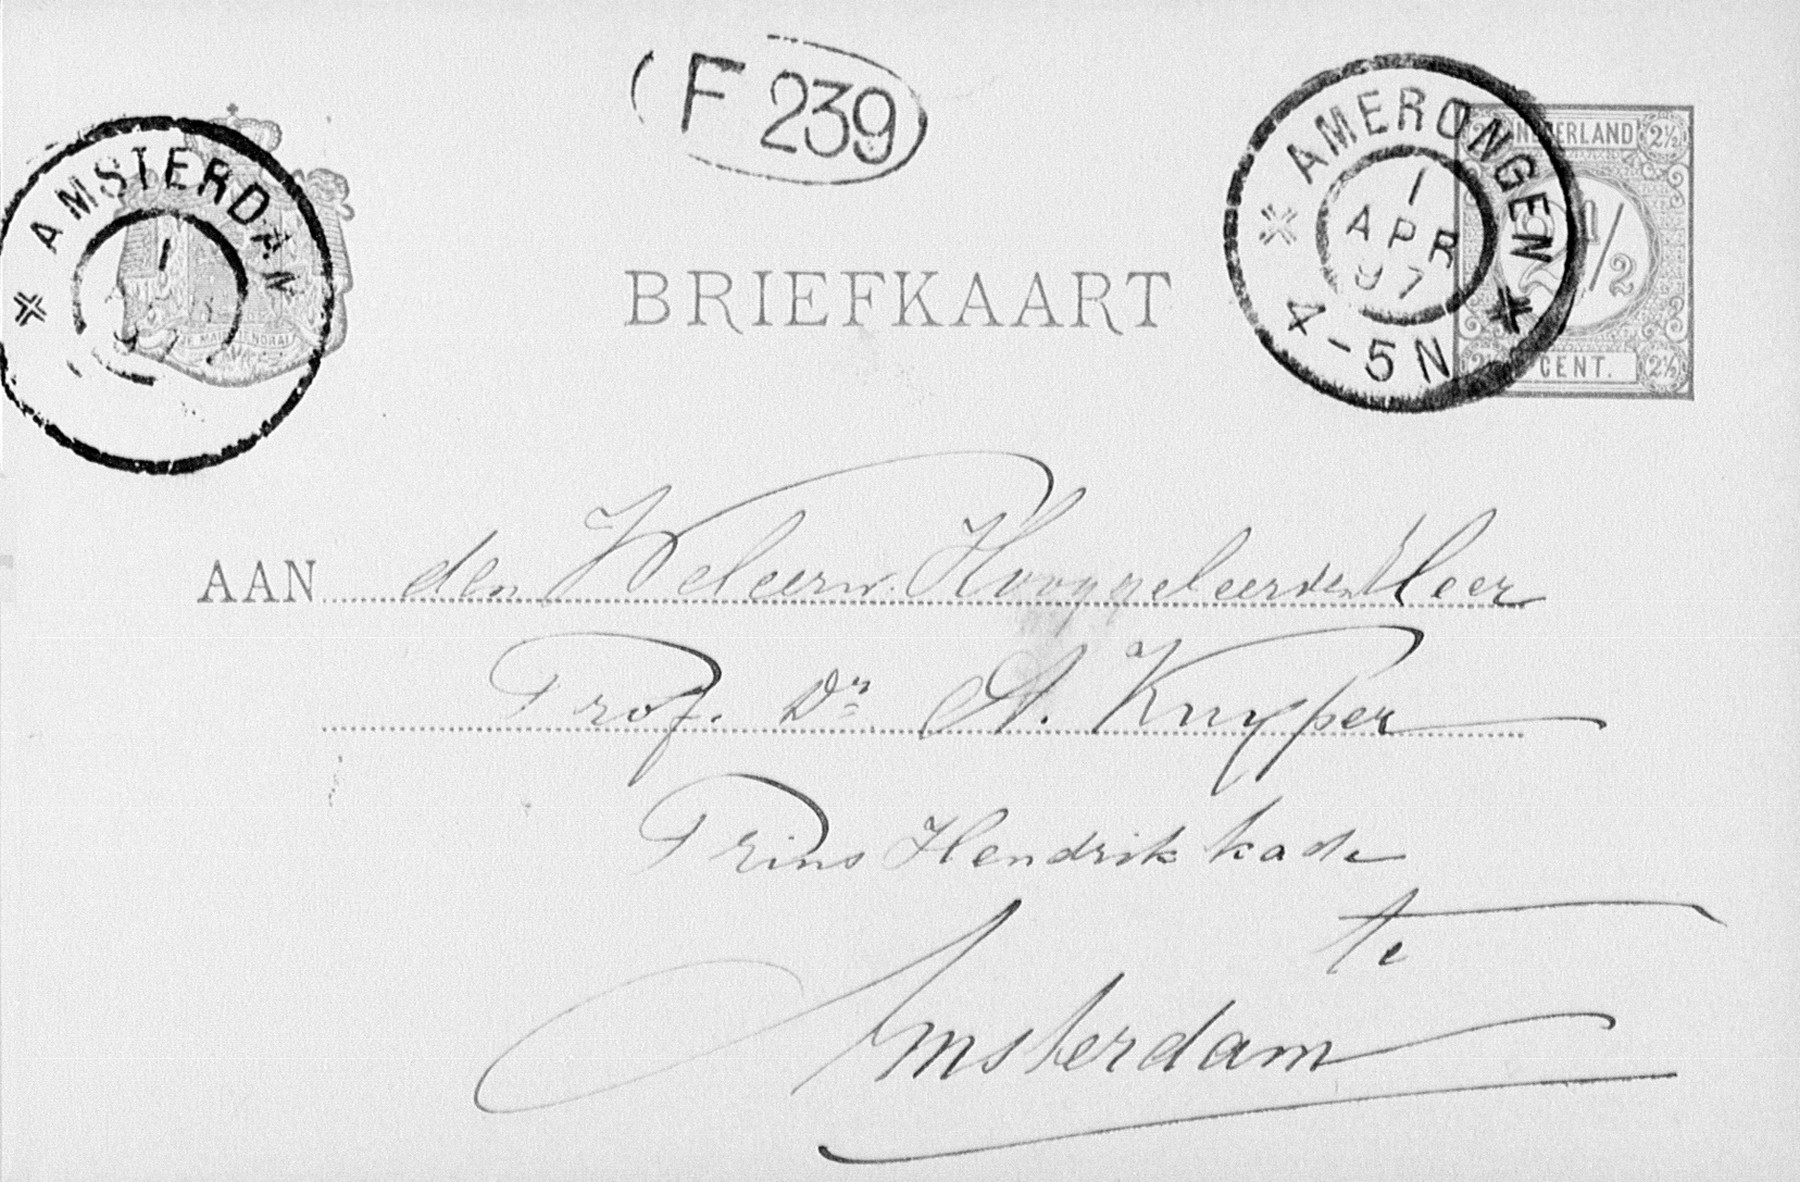 F 239
AMSTERDAM
1
97
JE MAINTIENDRAI
AMERONGEN
1
APR
97
4-5N
NEDERLAND
2½
2½
2½
2½
CENT.
BRIEFKAART
AAN den Weleerw. Hooggeleerden Heer
Prof. Dr. A. Kuyper
Prins Hendrikkade
te
Amsterdam